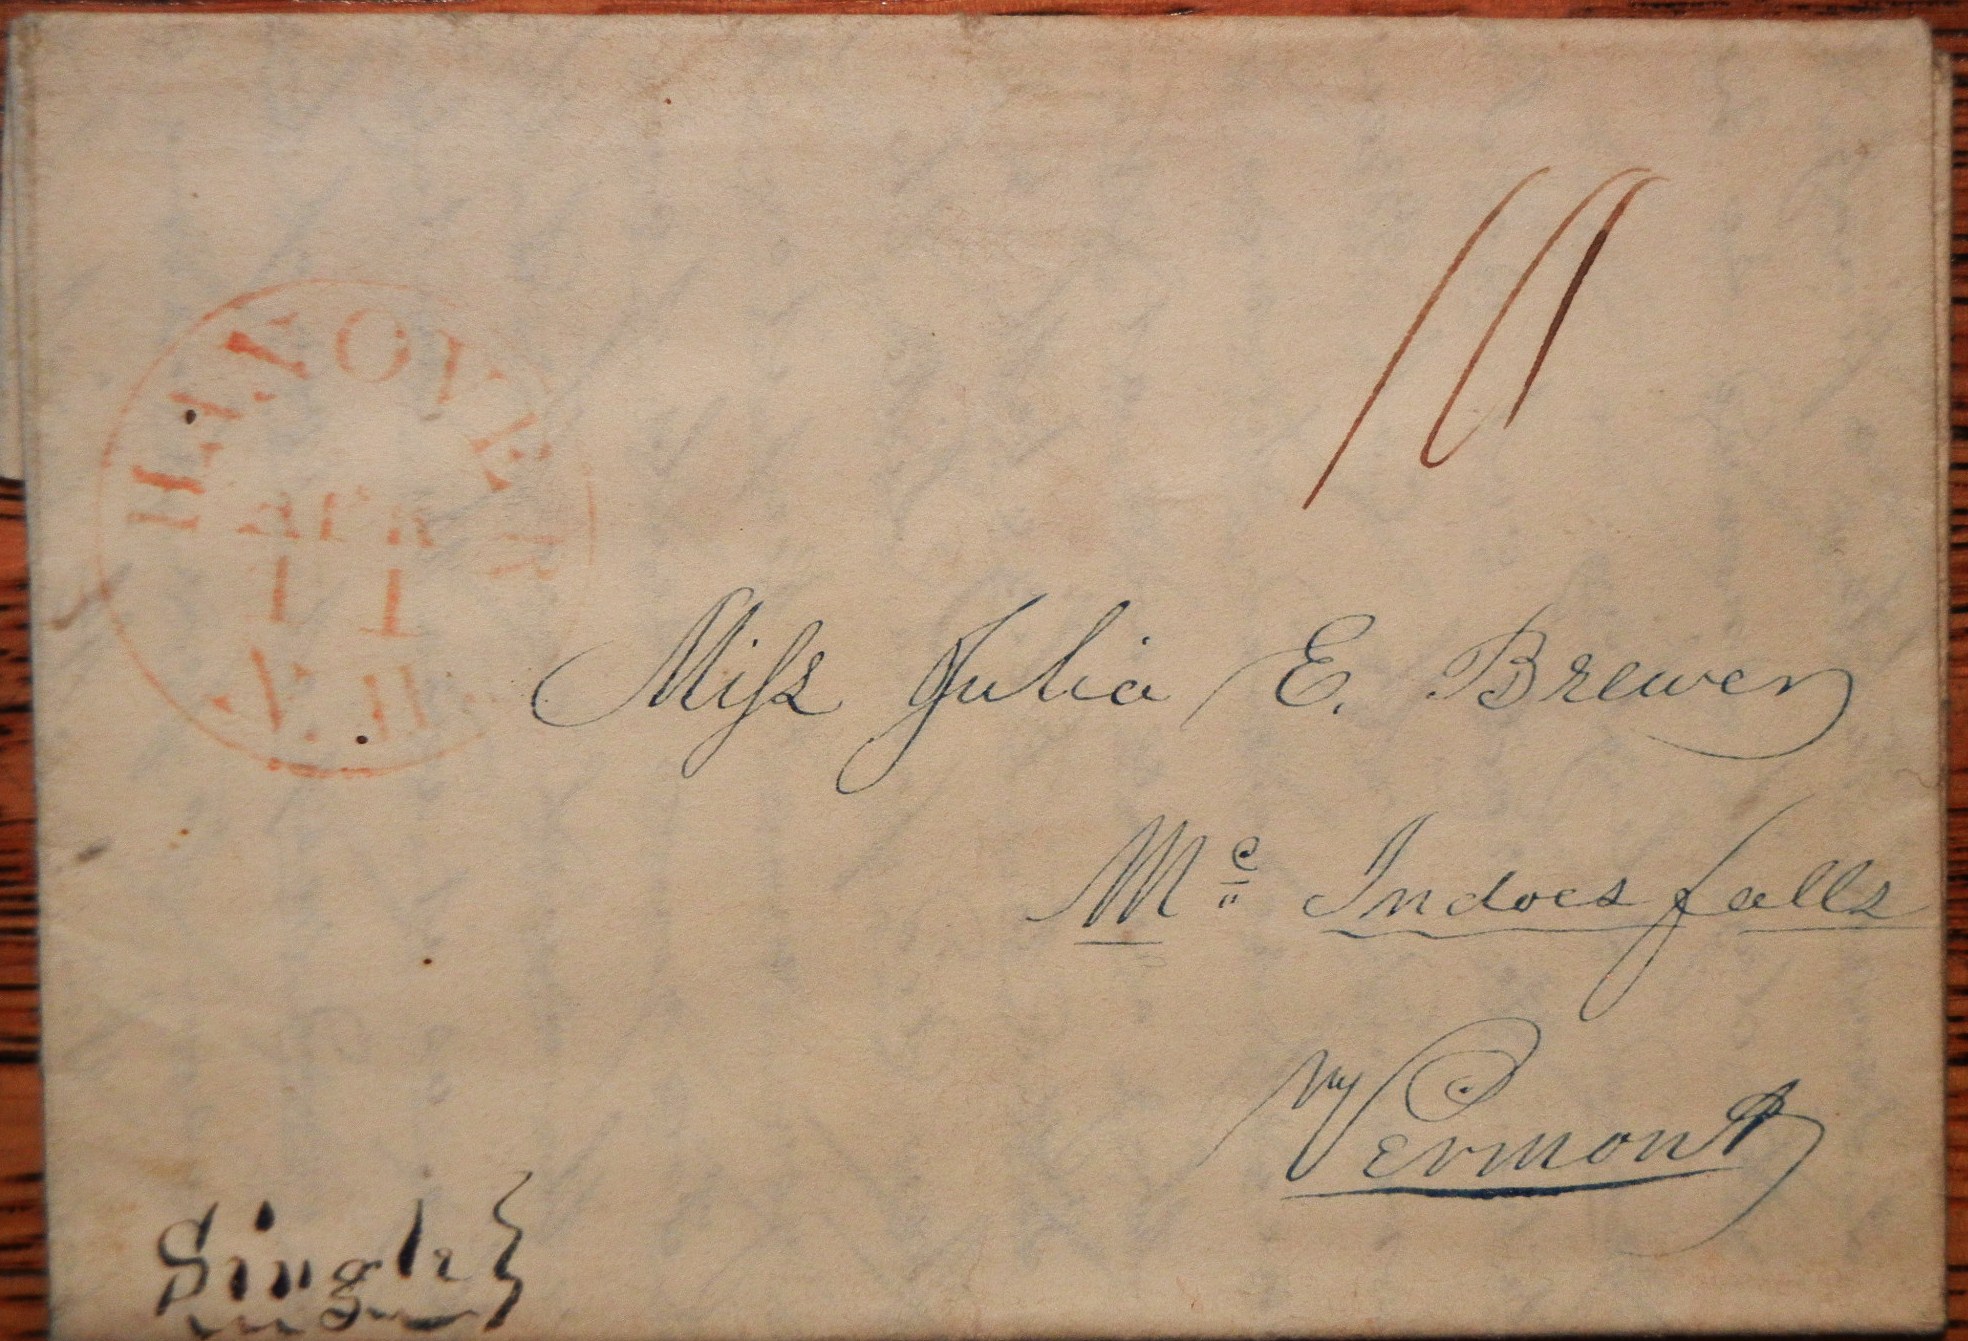 HANOVER
N.H.
10
Miss Julia E. Brewer
Mc Indoes falls
Vermont
Single